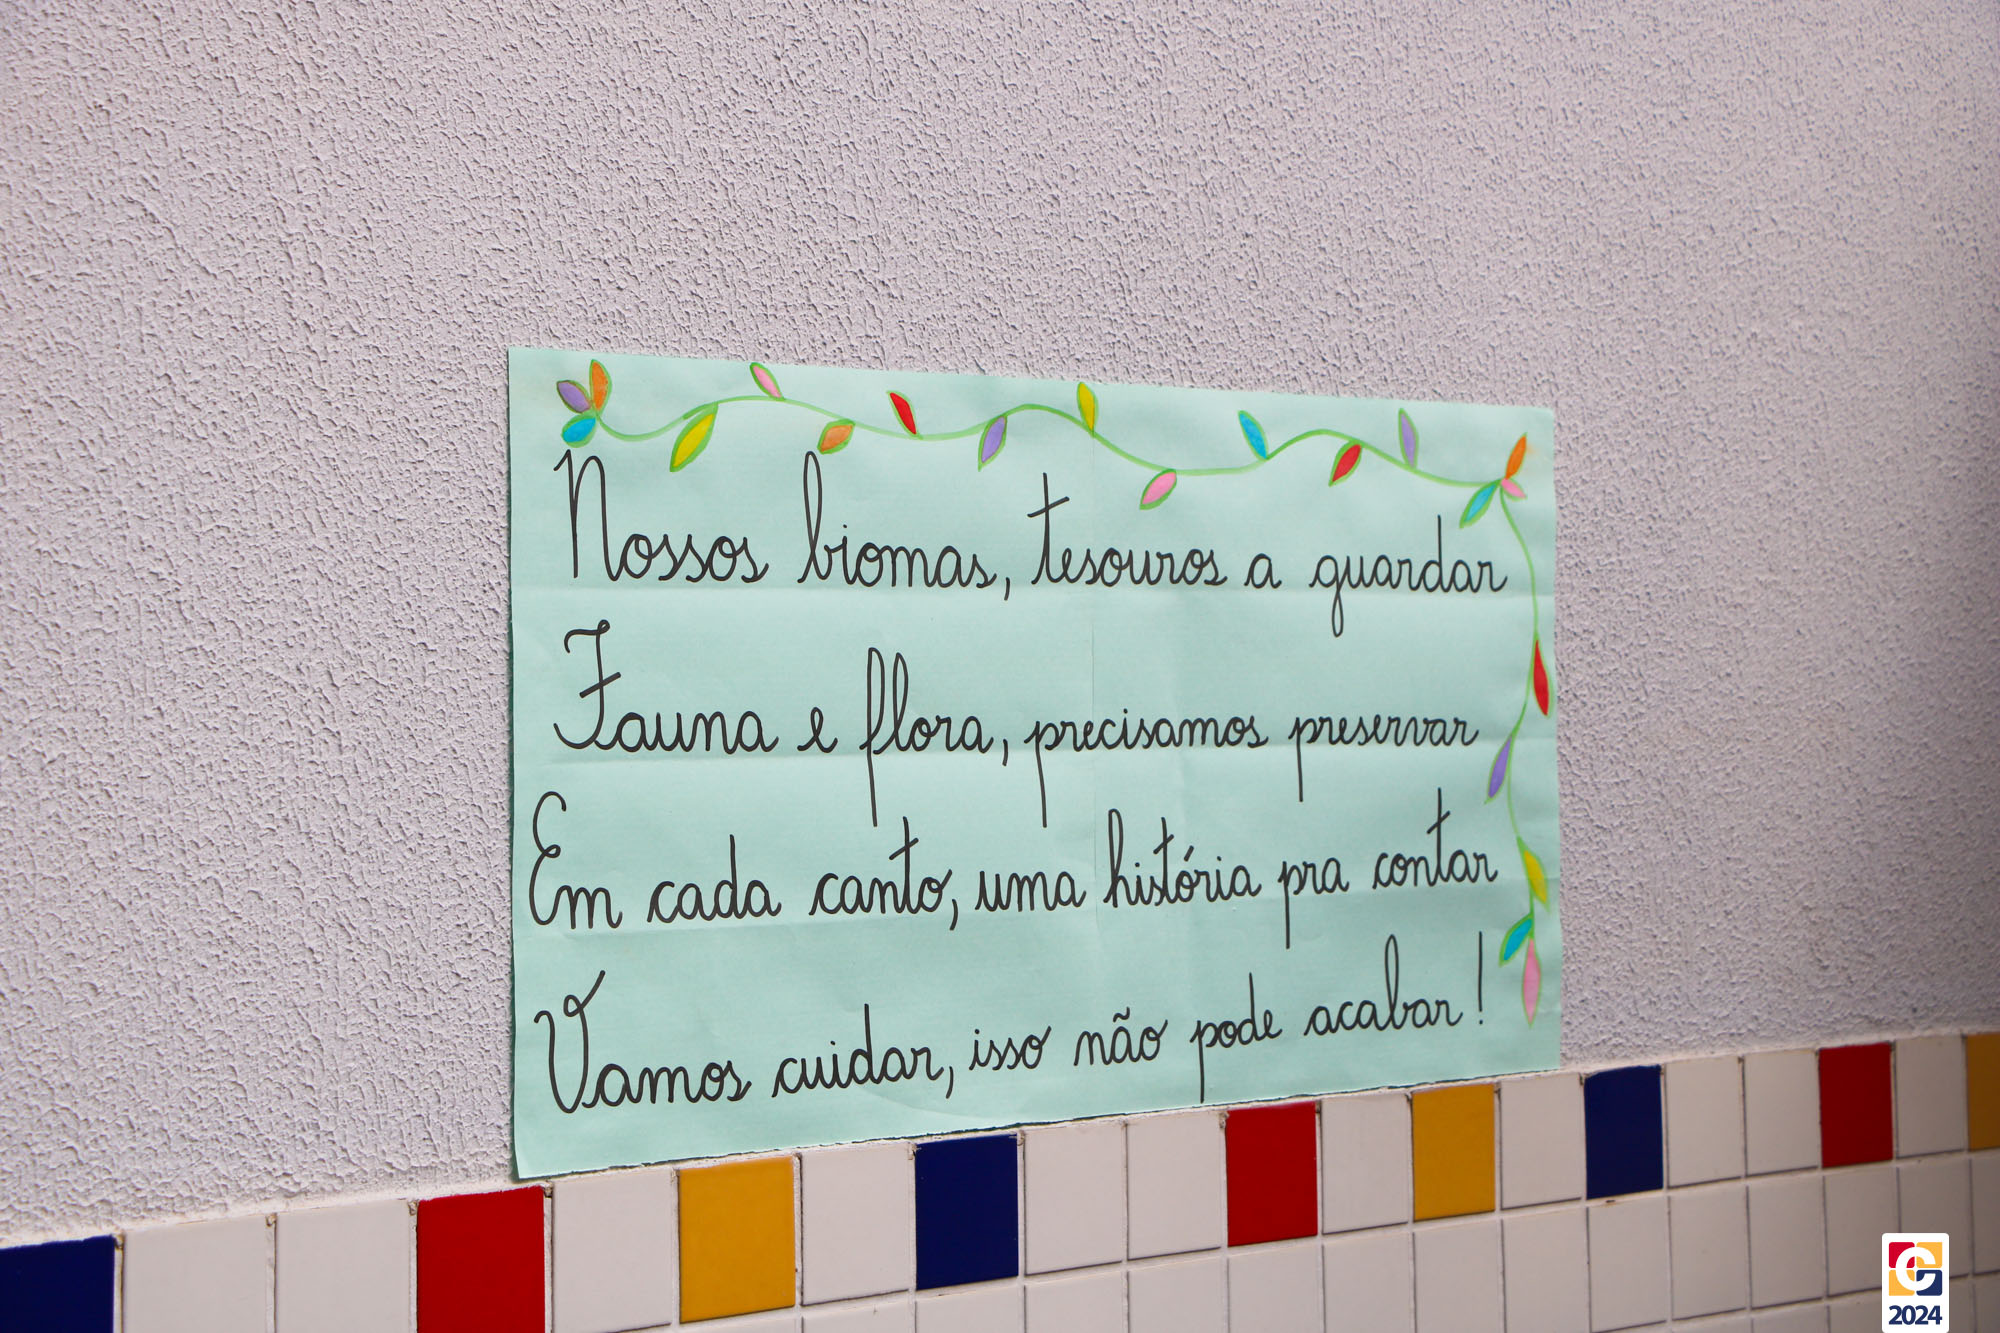 Nossos biomas, tesouros a guardar
Fauna e flora, precisamos preservar
Em cada canto, uma história pra contar
Vamos cuidar, isso não pode acabar!
2024